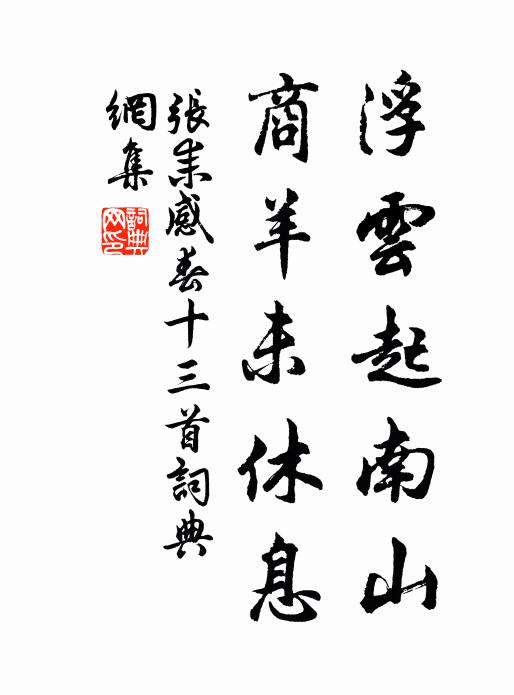 浮雲起南山
商羊未休息
張耒感春十三首詞典
網集
詞典網印